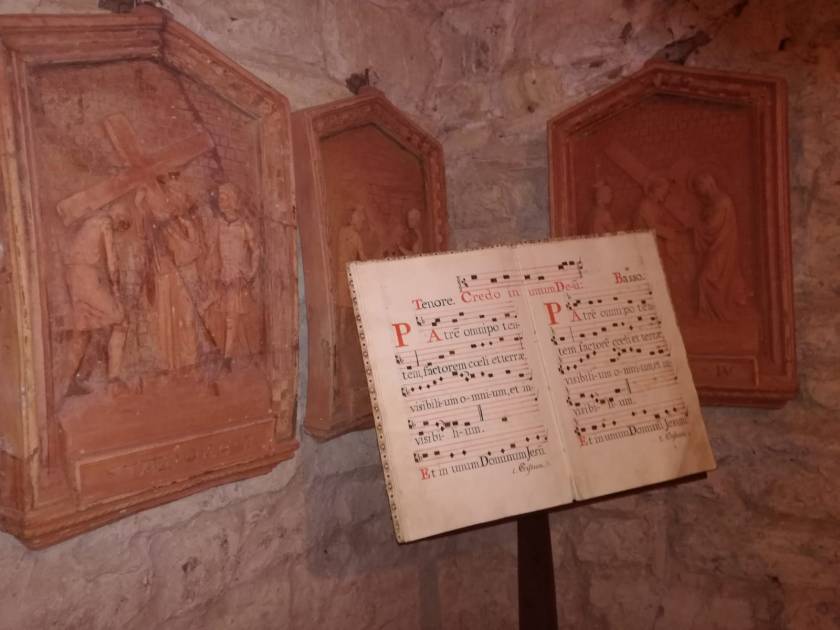 Credo in unum Deũ.
Tenore.
PAtrē omnipo ten-
tem, factorem cœli et terræ,
visibili-um o-mni-um, et in-
visibi- li-um.
Et in unum Dominum Jesū.
Basso.
PAtrē omnipo tēn-
tem factorē cœli et terræ
visibili-um o-mni-um, et in-
visibi- li- um.
Et in unum Dominū Jesum
IV